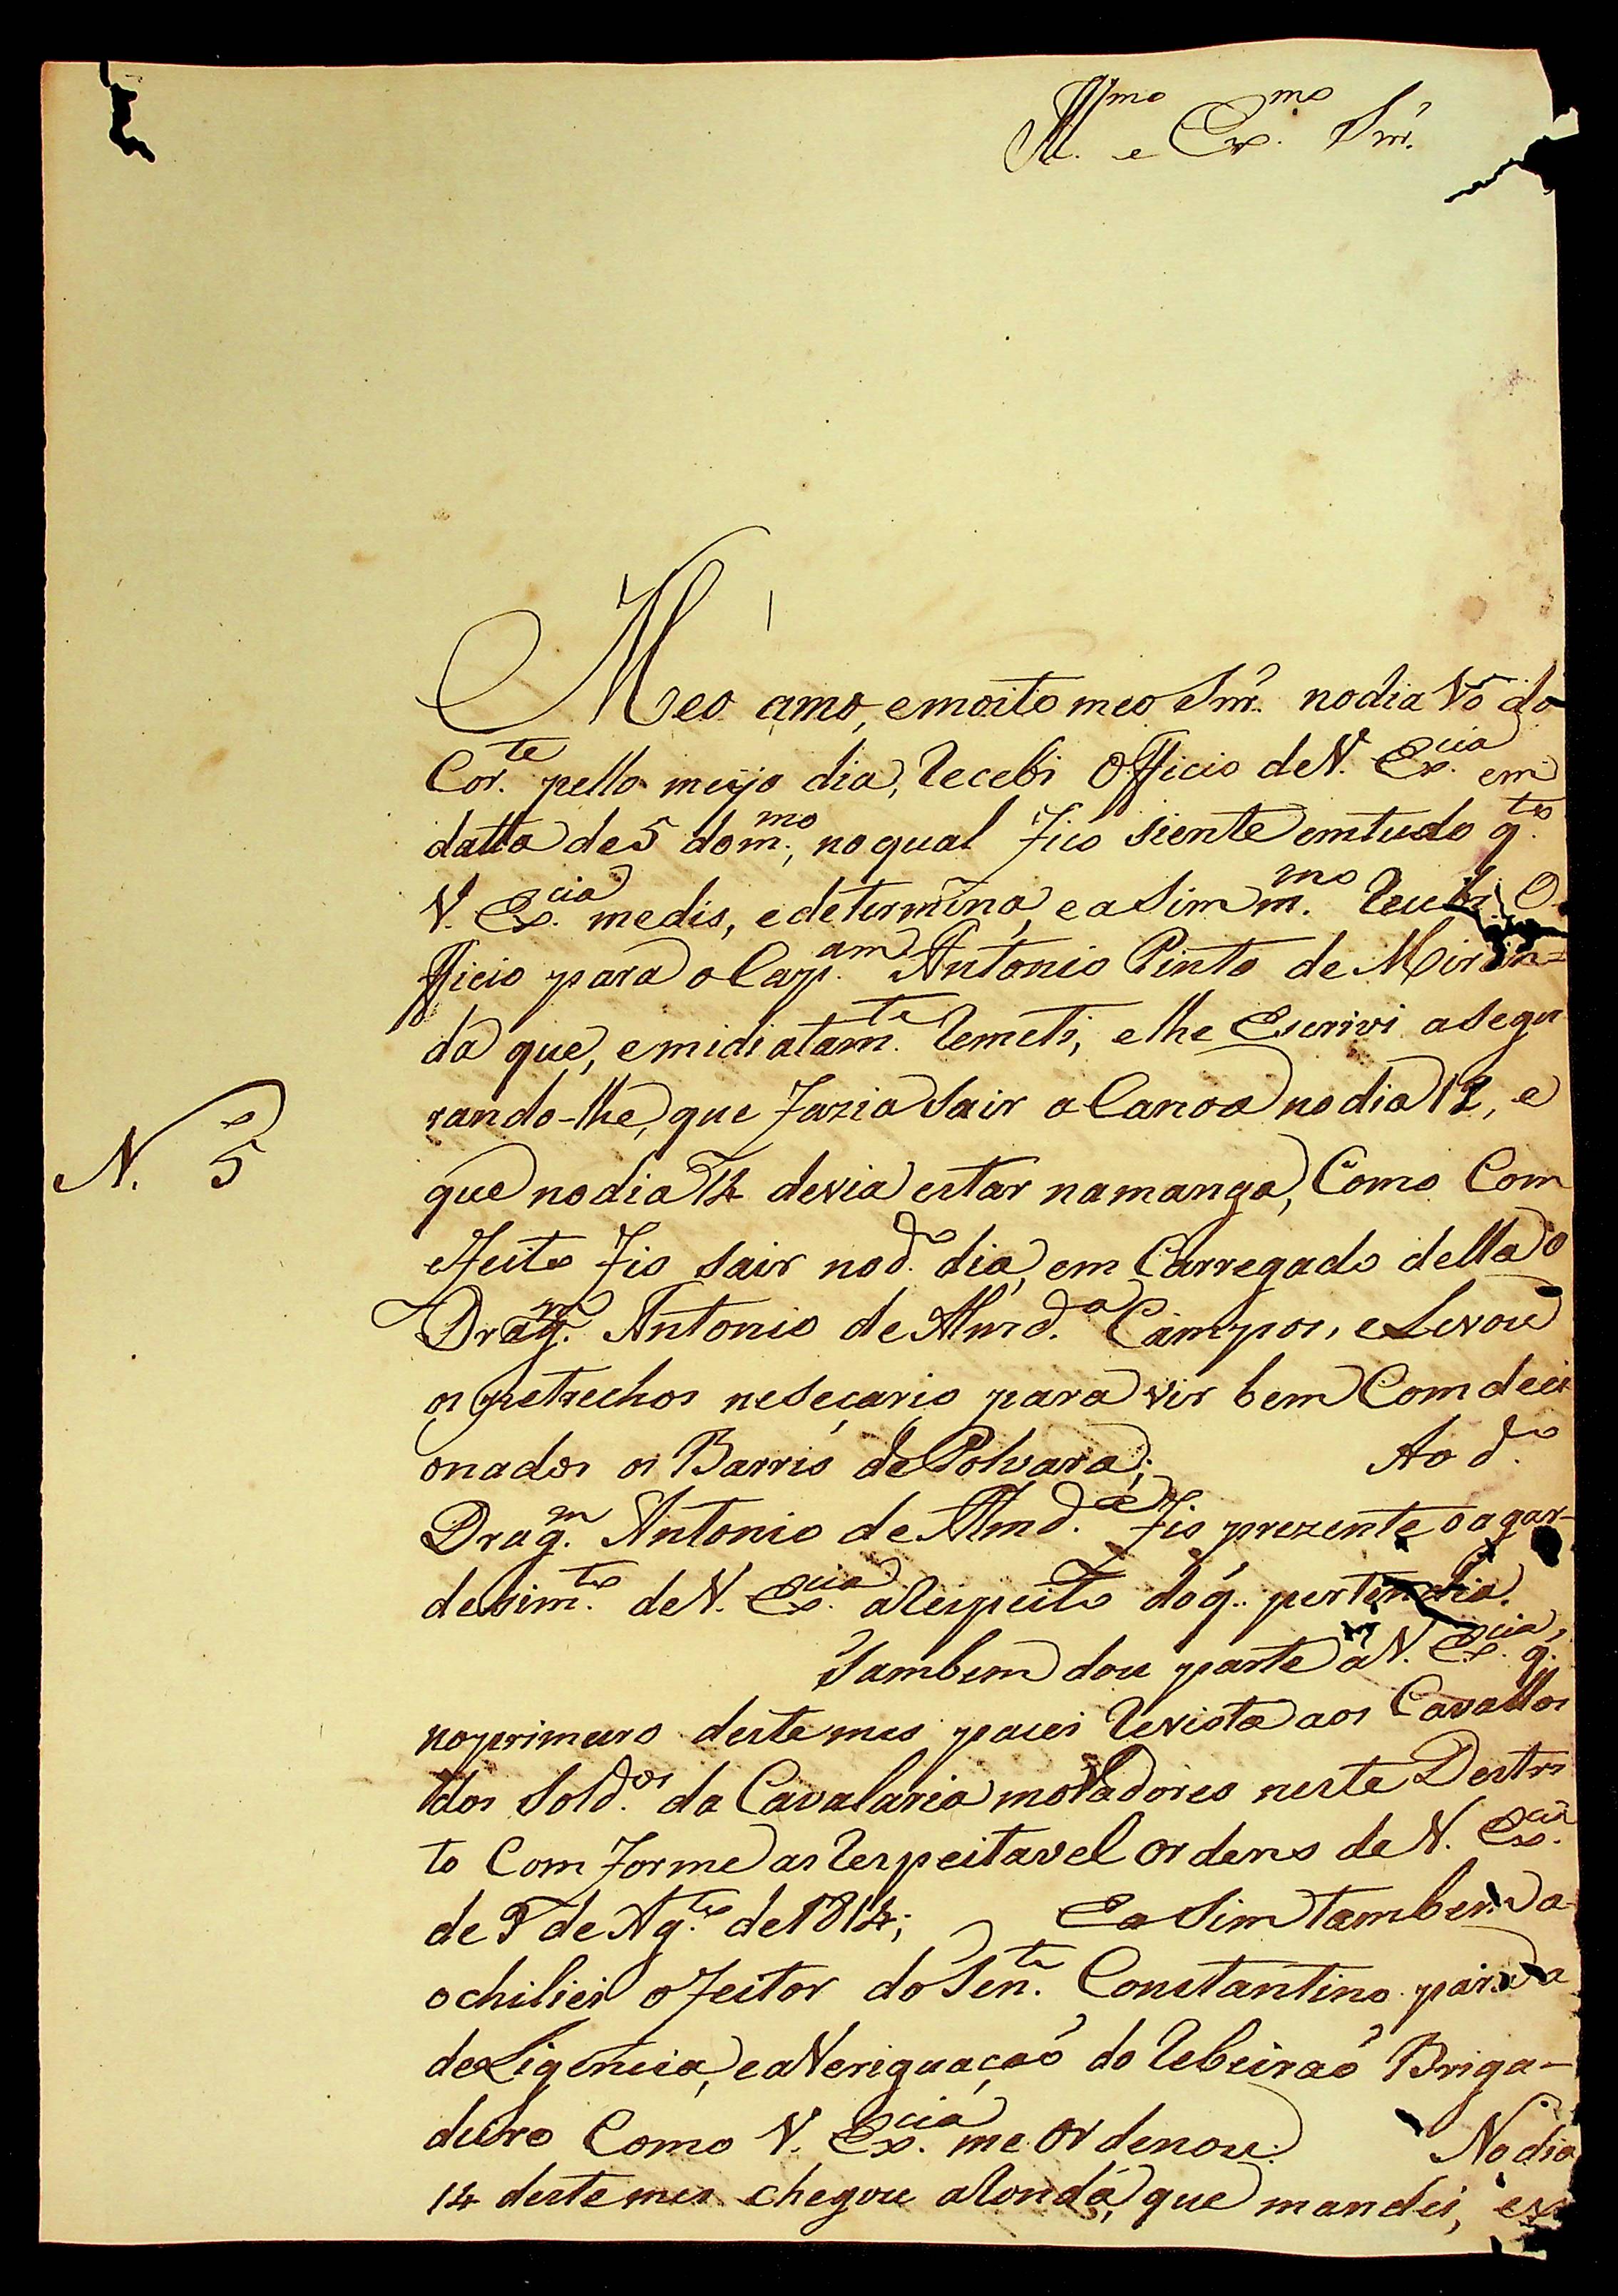 Ill.mo e Ex.mo Snr.
Meo amo, e moito meo Snr. no dia do
Cor.te pello meijo dia, Recebi Officio de V. Ex.cia em
datta de 5 do m.mo, no qual fico siente em tudo q.to
V. Ex.cia me dis, e determina, e a Sim m.mo Recebi O
fficio para o Cap.am Antonio Pinto de Miran=
da que, emidiatam.te Remeti, e lhe Escrivi a Segu
rando-lhe, que fazia Sair a Canoa no dia 12, e
N. 5
que no dia 14 devia estar na manga, Como Com
efeito fis sair no d.o dia, em Carregado della o
Drag.m Antonio de Almd.a Campos, e Levou
os petrechos neseçario para vir bem Com deci
onados os Barris de Polvara; Ao d.o
Drag.m Antonio de Almd.a fis prezente o agar-
desim.to de V. Ex.cia a Respeito do q. pertendia.
Tambem dou parte a V. Ex.cia, q.
no primeiro deste mes pacei Revista aos Cavallos
dos Sold.os da Cavalaria moradores neste Destri
to Com forme as Respeitavel Ordens de V. Ex.cia
de 9 de Ag.to de 1814; E a Sim tambem a
ochiliei o feitor do Ten.te Constantino para a
deLigencia, e aVeriguação do Ribeirão Briga-
deiro Como V. Ex.cia me Ordenou. No dia
14 deste mes chegou a Ronda, que mandei, ex